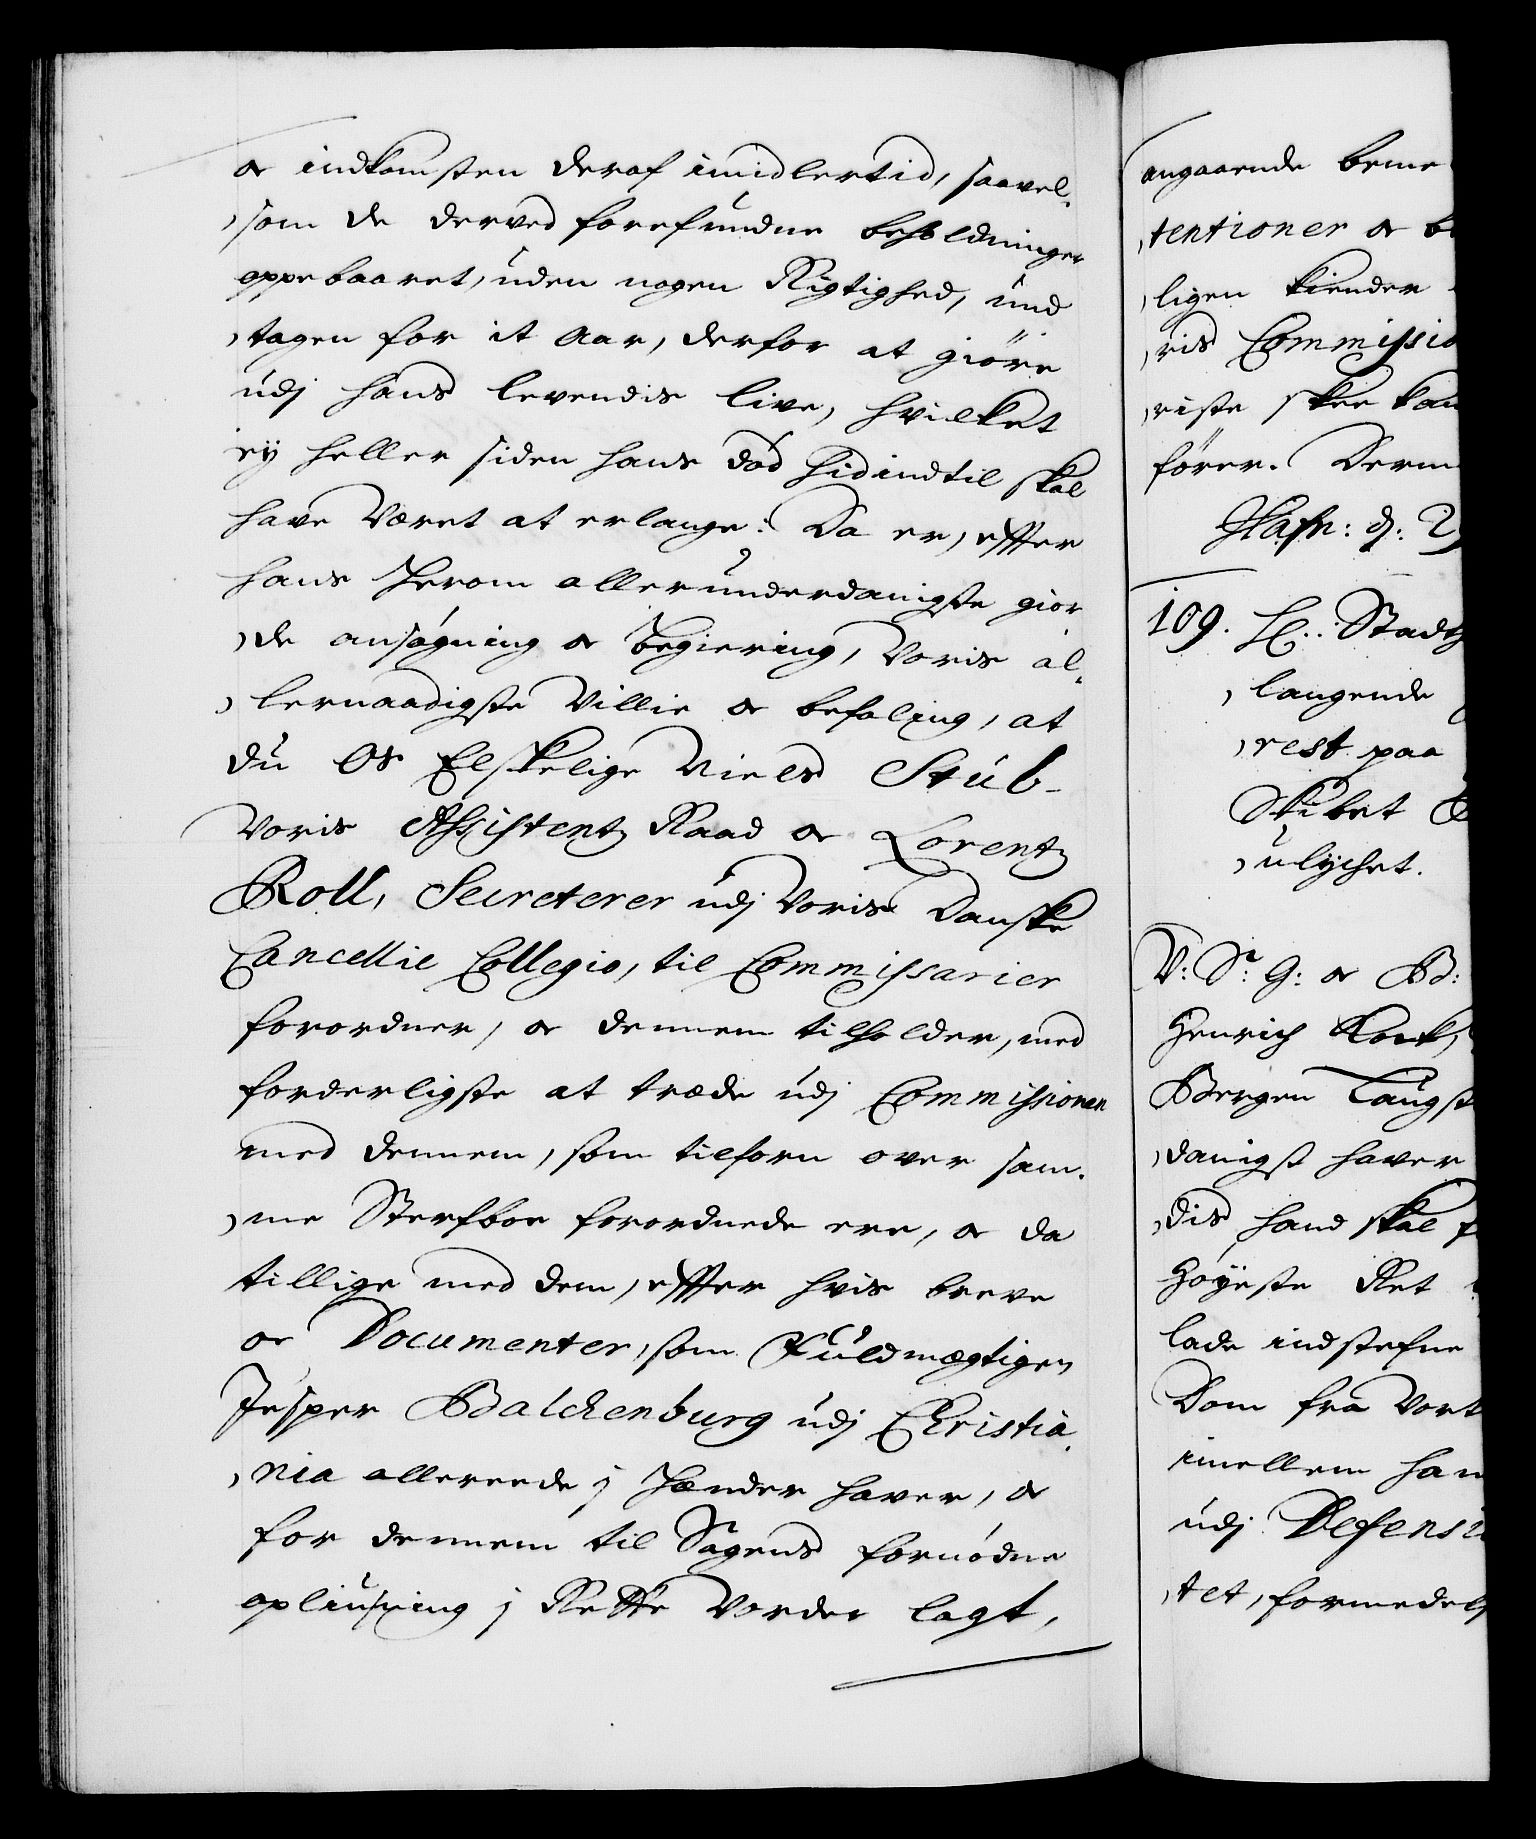 oc indkomsten deraf imidlertid, saavel-
som de derved forefundne beholdninger
oppebaaret, uden nogen Rigtighed, und
tagen for it Aar, derfor at giöre
udj hans levendis live, hvilket
ey heller siden hans död hidindtil skal
have Været at erlange: Da er, effter
hans herom allerunderdanigste gior
de ansögning oc begiering, Voris al-
lernaadigste Villie oc befaling, at
du Os Elskelige Niels Stub
Voris Assistentz Raad oc Lorentz
Roll, Secreterer udj Voris Danske
Cancellie Collegio, til Commissarier
forordner, oc dennem tilholder, med
forderligste at træde udj Commissionen
med dennem, som tilforn over sam-
me Sterfboe forordnede ere, oc da
tillige med dem, effter hvis breve
oc Documenter, som Fuldmægtigen
Jesper Balchenburg udj Christia-
nia allereede j hænder haver, oc
for dennem til Sagens fornödne
opliusning j Rette Vorder lagt,
angaaende beme
tentioner oc be
ligen kiender
ris Commissio
riste skee kan
fører. Derm
Hafn: d: 2
109. H.: Stadth
langende
rest paa
Skibet
ulychet.
V: Sr: G: oc B:
Henrich
Bergen Laugst
danigst haver
dis hand skal f
Höyeste Ret
lade indstefne
Dom fra Vort
imellem han
udj Defensi
tet, formedels